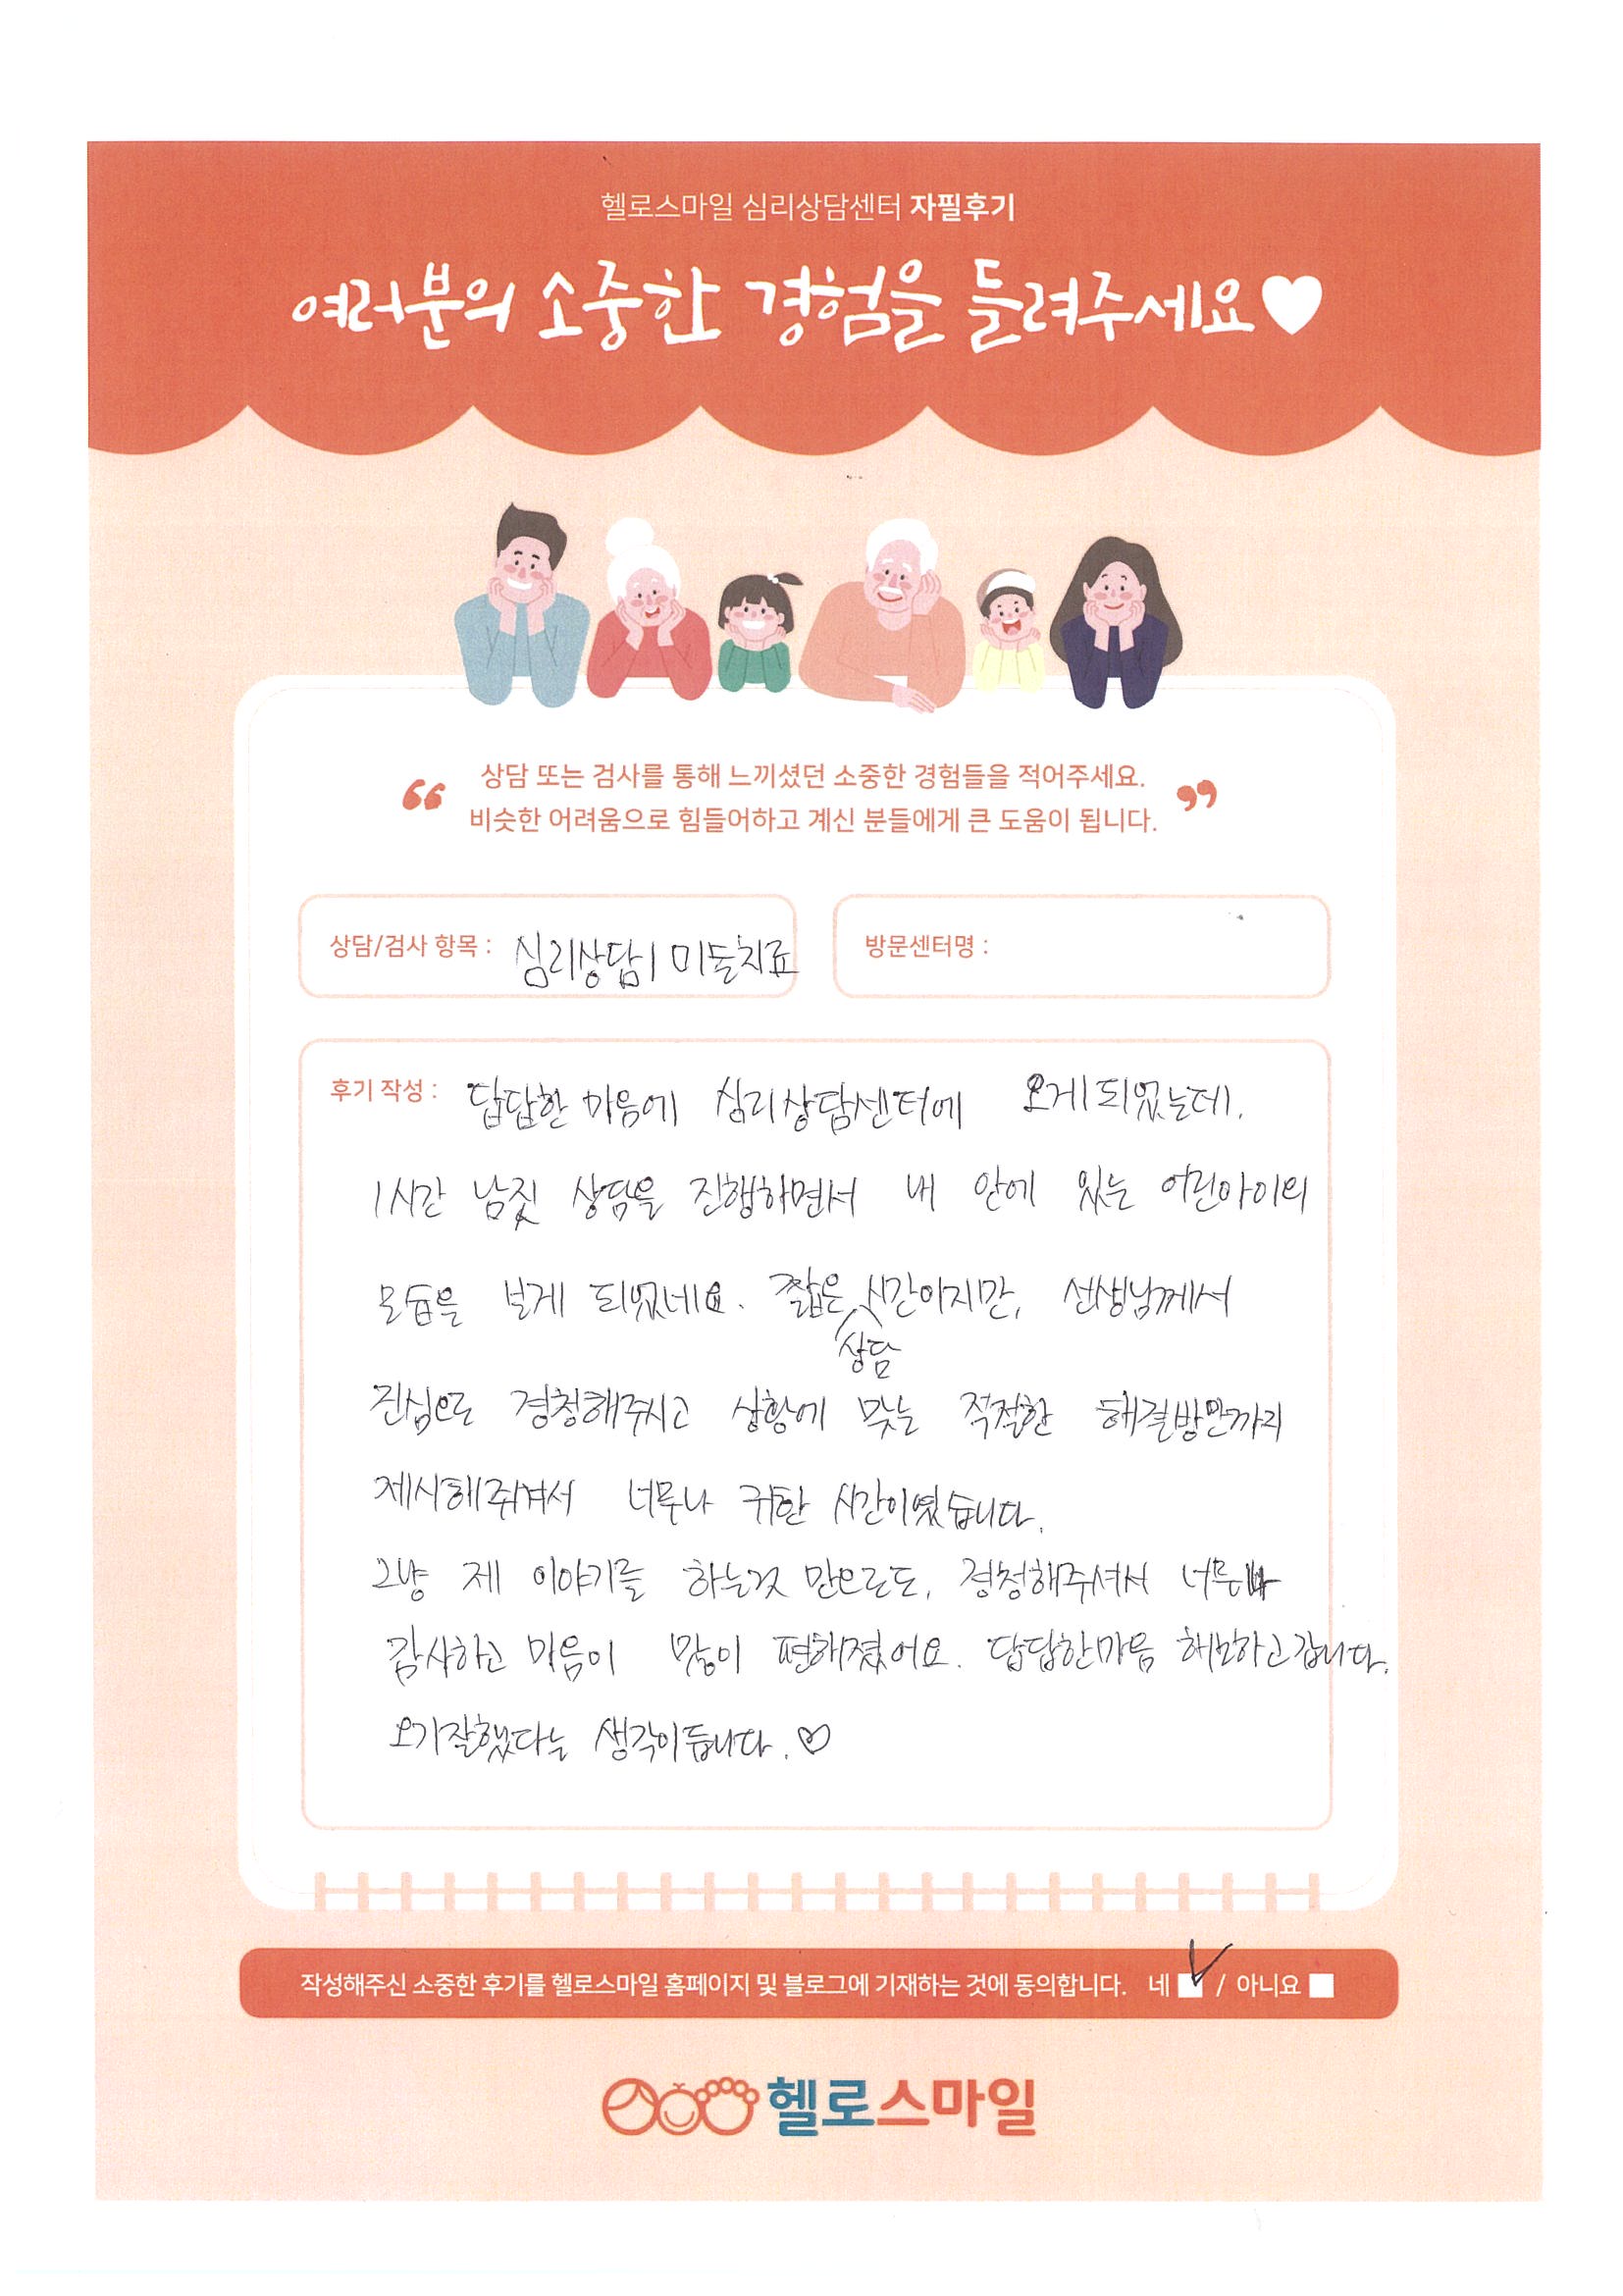 헬로스마일 심리상담센터 자필후기
여러분의 소중한 경험을 들려주세요♥
“ 상담 또는 검사를 통해 느끼셨던 소중한 경험들을 적어주세요.
비슷한 어려움으로 힘들어하고 계신 분들에게 큰 도움이 됩니다. ”
상담/검사 항목 : 심리상담, 미술치료
방문센터명 :
후기 작성 : 답답한 마음에 심리상담센터에 오게되었는데,
1시간 남짓 상담을 진행하면서 내 안에 있는 어린아이의
모습을 보게 되었네요. 짧은 상담 시간이지만, 선생님께서
진심으로 경청해주시고 상황에 맞는 적절한 해결방안까지
제시해주셔서 너무나 귀한 시간이였습니다.
그냥 제 이야기를 하는것 만으로도, 경청해주셔서 너무나
감사하고 마음이 많이 편해졌어요. 답답한마음 해소하고갑니다.
오기잘했다는 생각이듭니다. ♡
작성해주신 소중한 후기를 헬로스마일 홈페이지 및 블로그에 기재하는 것에 동의합니다. 네 ☑ / 아니요 ☐
헬로스마일